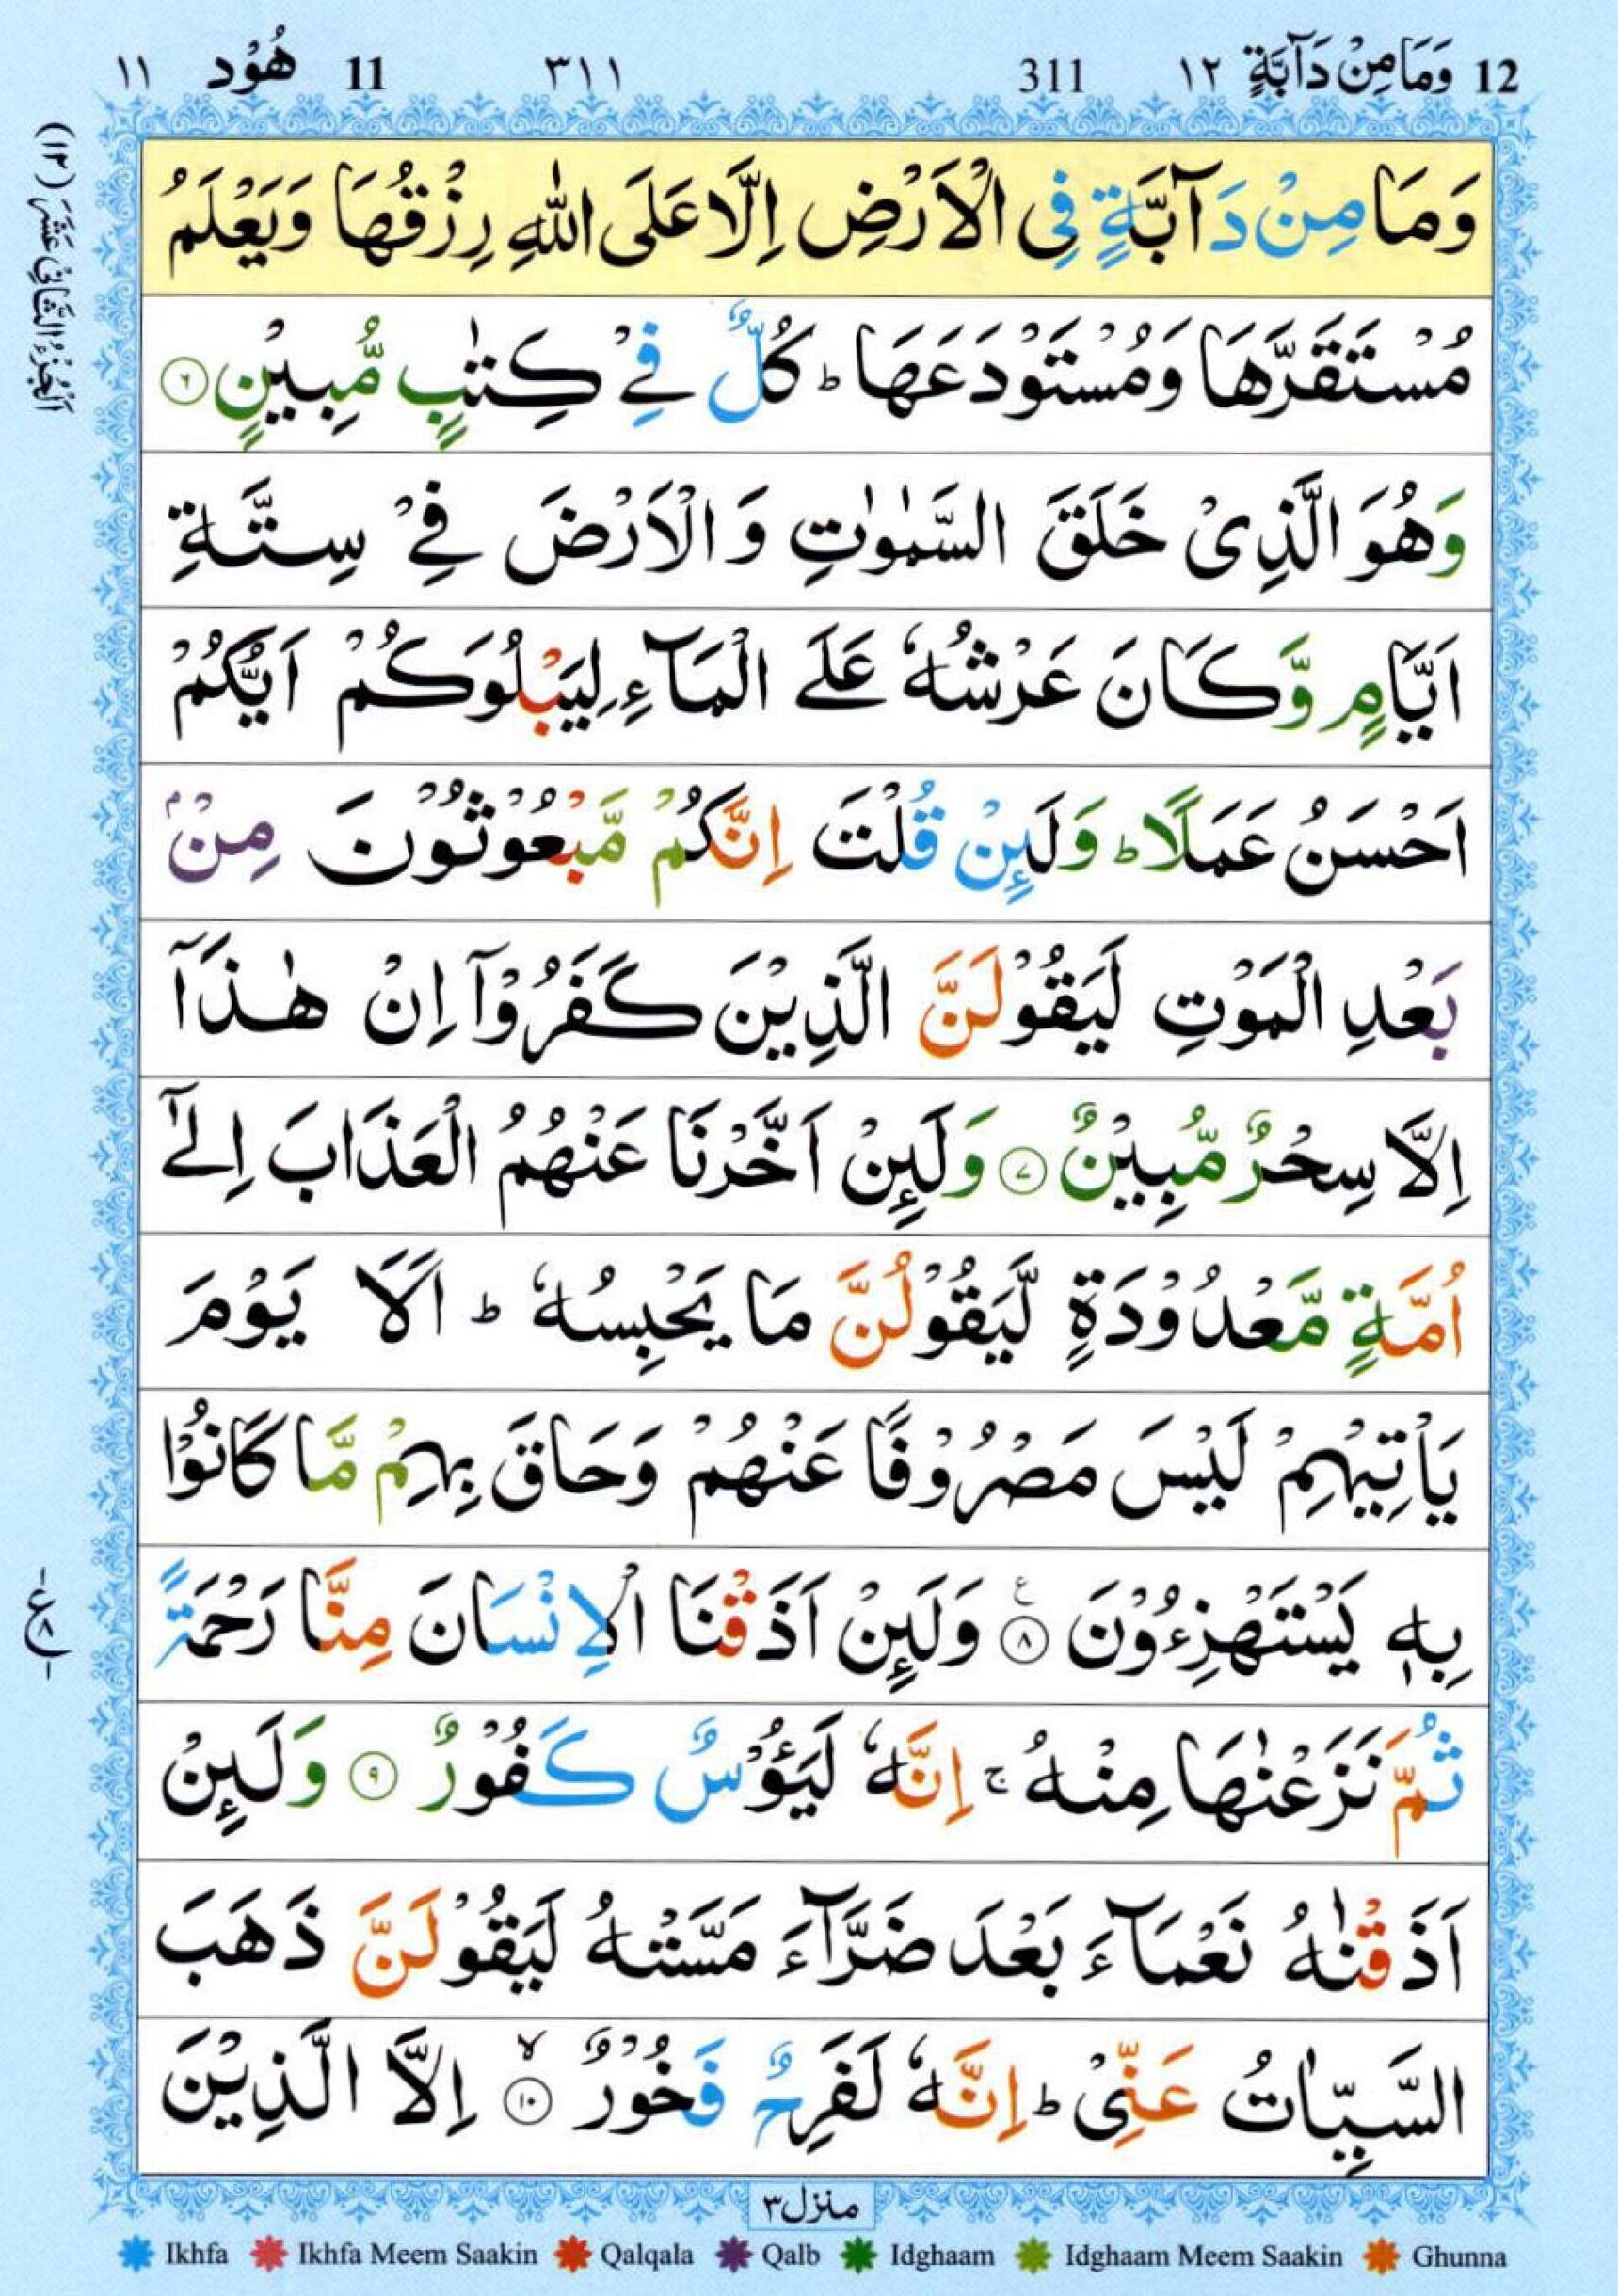 12 وَمَا مِنْ دَآبَّةٍ ١٢ 311 ٣١١ 11 هُوْد ١١
اَلْجُزْءُ الثَّانِيْ عَشَرَ (١٢)
وَمَا مِنْ دَآبَّةٍ فِى الْاَرْضِ اِلَّا عَلَى اللّٰهِ رِزْقُهَا وَيَعْلَمُ
مُسْتَقَرَّهَا وَمُسْتَوْدَعَهَا ؕ كُلٌّ فِىْ كِتٰبٍ مُّبِيْنٍ ۝٦
وَهُوَ الَّذِىْ خَلَقَ السَّمٰوٰتِ وَ الْاَرْضَ فِىْ سِتَّةِ
اَيَّامٍ وَّكَانَ عَرْشُهٗ عَلَى الْمَآءِ لِيَبْلُوَكُمْ اَيُّكُمْ
اَحْسَنُ عَمَلًا ؕ وَلَئِنْ قُلْتَ اِنَّكُمْ مَّبْعُوْثُوْنَ مِنْۢ
بَعْدِ الْمَوْتِ لَيَقُوْلَنَّ الَّذِيْنَ كَفَرُوْۤا اِنْ هٰذَاۤ
اِلَّا سِحْرٌ مُّبِيْنٌ ۝٧ وَلَئِنْ اَخَّرْنَا عَنْهُمُ الْعَذَابَ اِلٰٓى
اُمَّةٍ مَّعْدُوْدَةٍ لَّيَقُوْلُنَّ مَا يَحْبِسُهٗ ؕ اَلَا يَوْمَ
يَاْتِيْهِمْ لَيْسَ مَصْرُوْفًا عَنْهُمْ وَحَاقَ بِهِمْ مَّا كَانُوْا
بِهٖ يَسْتَهْزِءُوْنَ ۝٨ ع وَلَئِنْ اَذَقْنَا الْاِنْسَانَ مِنَّا رَحْمَةً
ثُمَّ نَزَعْنٰهَا مِنْهُ ۚ اِنَّهٗ لَيَئُوْسٌ كَفُوْرٌ ۝٩ وَلَئِنْ
اَذَقْنٰهُ نَعْمَآءَ بَعْدَ ضَرَّآءَ مَسَّتْهُ لَيَقُوْلَنَّ ذَهَبَ
السَّيِّاٰتُ عَنِّىْ ؕ اِنَّهٗ لَفَرِحٌ فَخُوْرٌ ۙ ۝١٠ اِلَّا الَّذِيْنَ
منزل ٣
Ikhfa Ikhfa Meem Saakin Qalqala Qalb Idghaam Idghaam Meem Saakin Ghunna